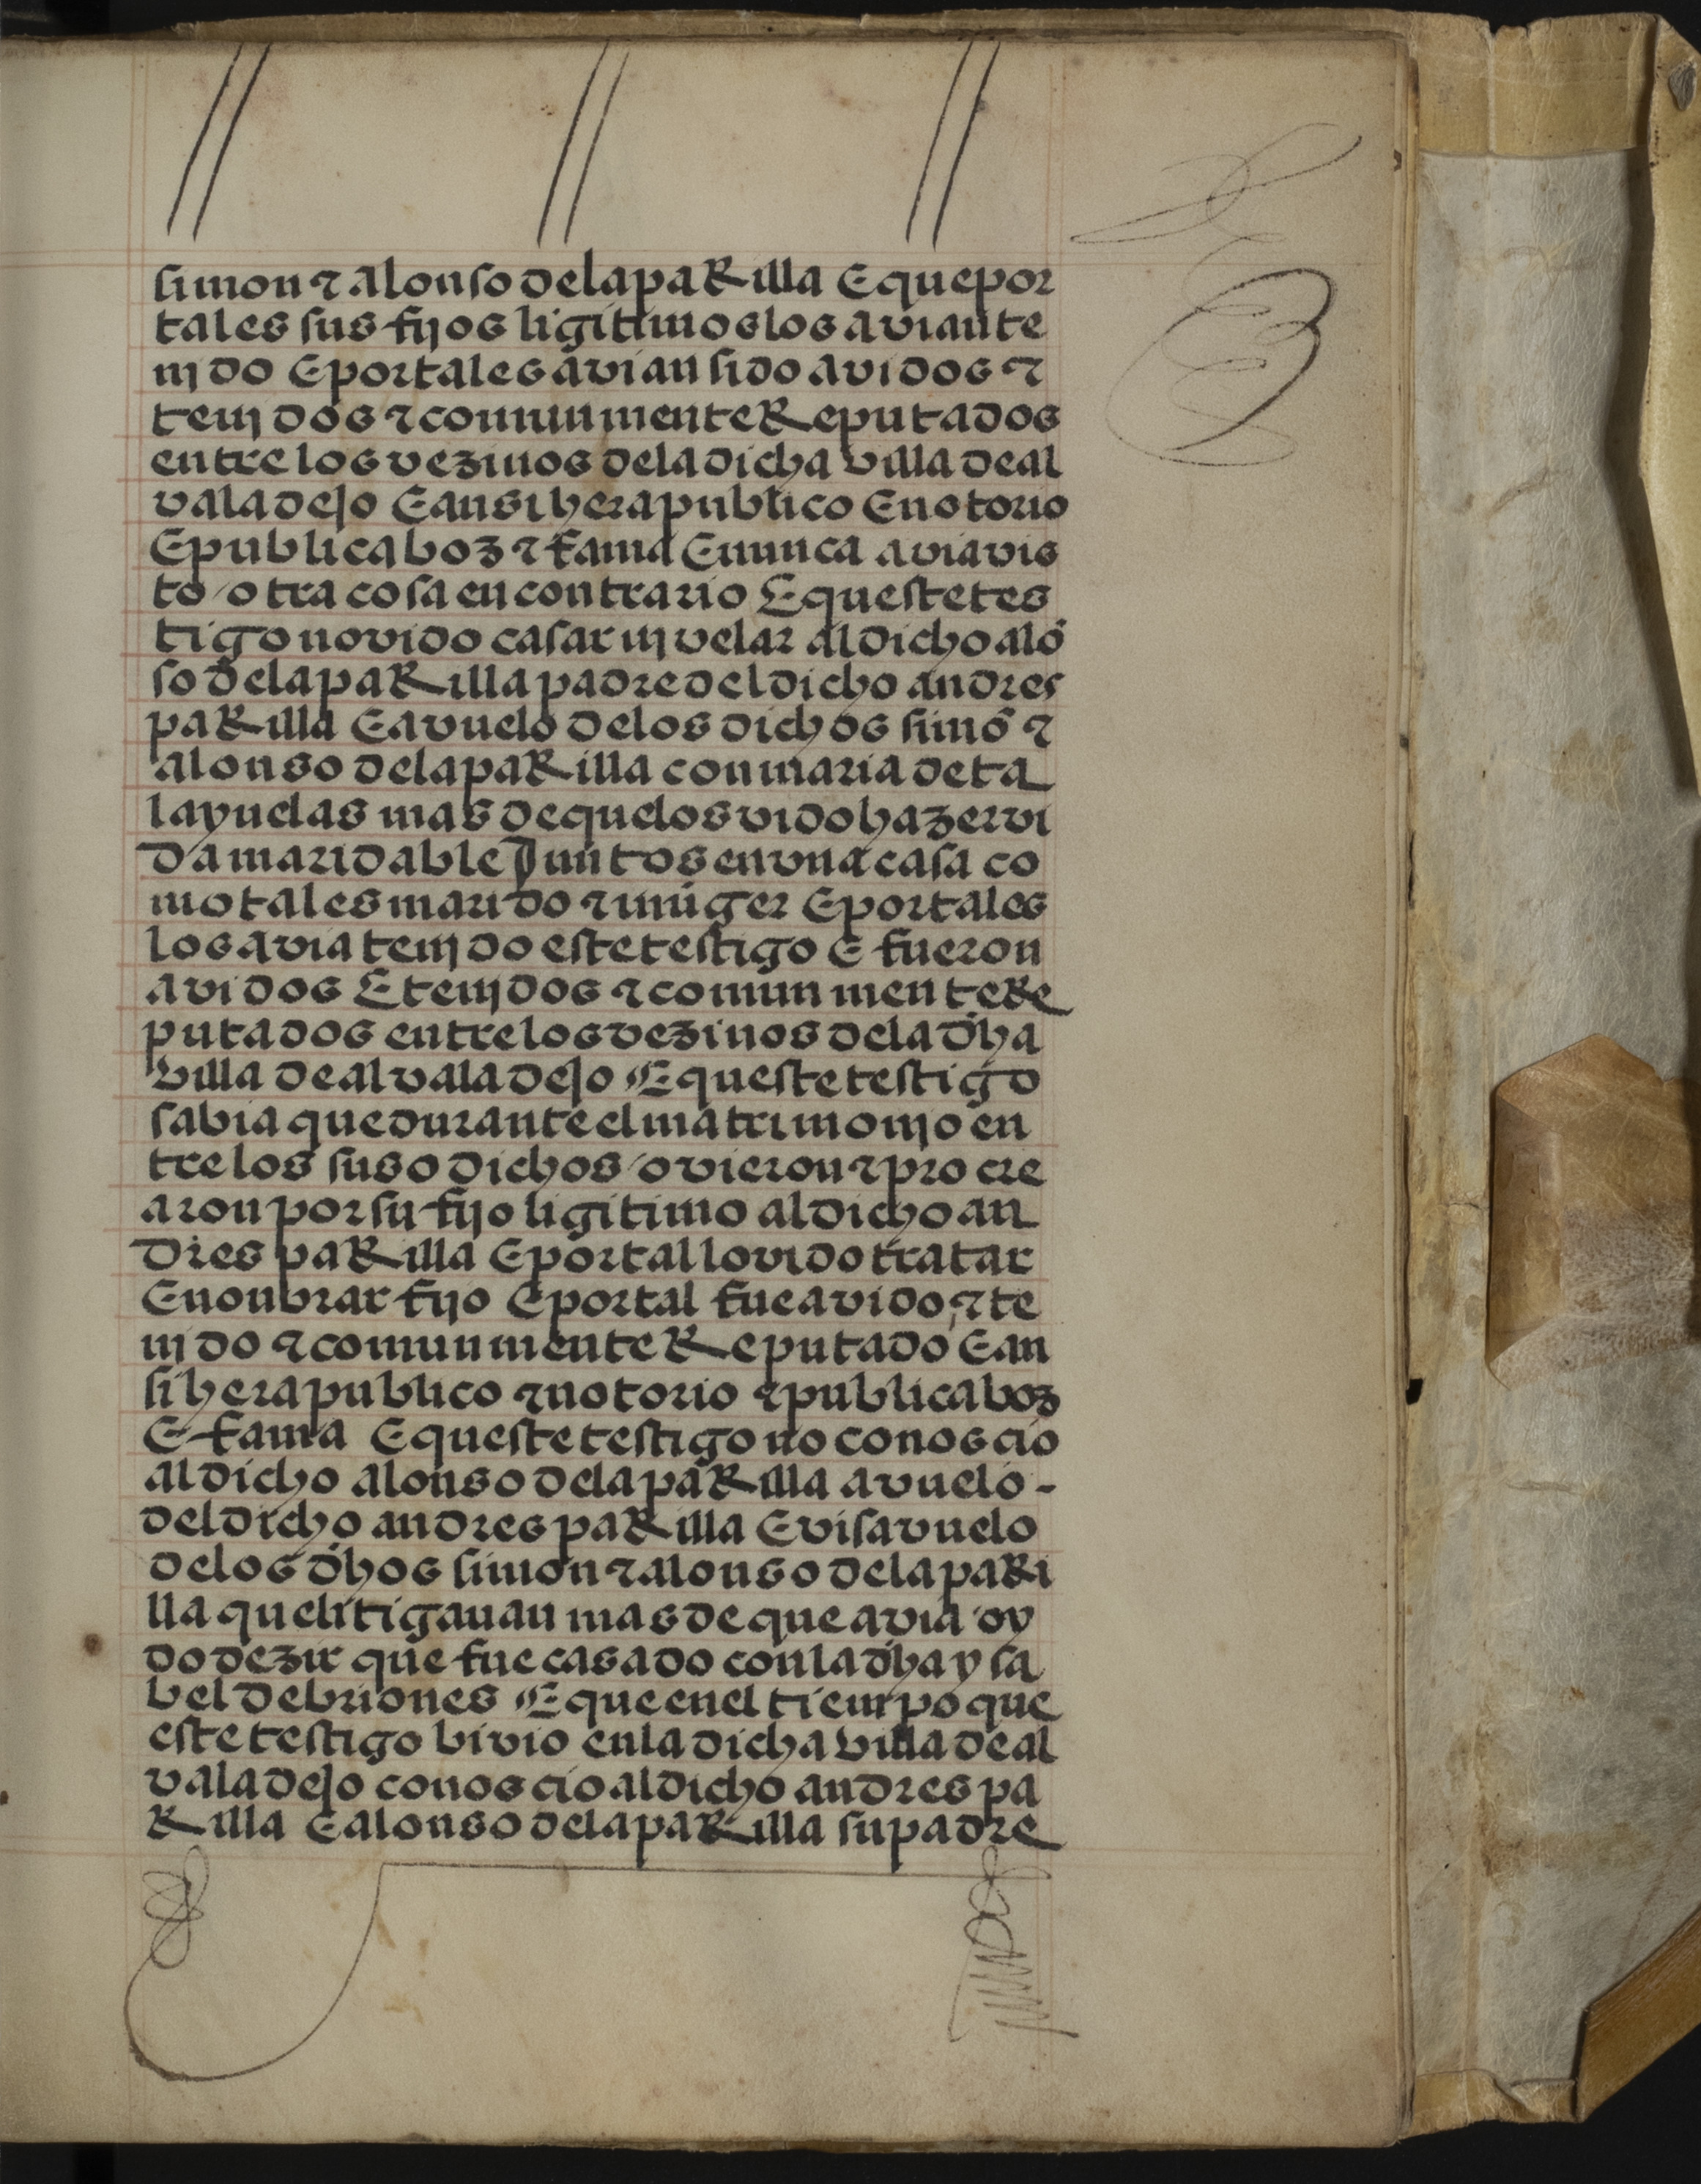 simon ⁊ alonso dela paRilla E que por
tales sus fijos ligitimos los avian te
nj do E por tales avian sido avidos ⁊
tenj dos ⁊ comun mente Reputados
entre los vezinos dela dicha villa de al
valadejo E ansi hera publico E notorio
E publica boz ⁊ fama E nunca avia vis
to otra cosa en contrario E queste tes
tigo no vido casar nj velar al dicho alō
so dela paRilla padre del dicho andres
paRilla E avuelo delos dichos simō ⁊
alonso dela paRilla con maria de ta
layuelas mas de que los vido hazer vi
da maridable Juntos en vna casa co
mo tales marido ⁊ muger E por tales
los avia tenj do este testigo E fueron
avidos E tenjdos ⁊ comun mente Re
putados entre los vezinos dela dha
villa de alvaladejo E queste testigo
sabia que durante el matrimonjo en
tre los suso dichos ovieron ⁊ pro cre
aron por su fijo ligitimo al dicho an
dres paRilla E por tal lo vido tratar
E nonbrar fijo E por tal fue avido ⁊ te
nj do ⁊ comun mente Reputado E an
si hera publico ⁊ notorio ⁊ publica boz
E fama E queste testigo no conoscio
al dicho alonso dela paRilla avuelo -
del dicho andres paRilla E visavuelo
delos dhos simon ⁊ alonso dela paRi
lla que litigauan mas de que avia oy
do dezir que fue casado con la dha ysa
bel de briones E que en el tiempo que
este testigo bivio en la dicha villa de al
valadejo conoscio al dicho andres pa
Rilla E alonso dela paRilla su padre